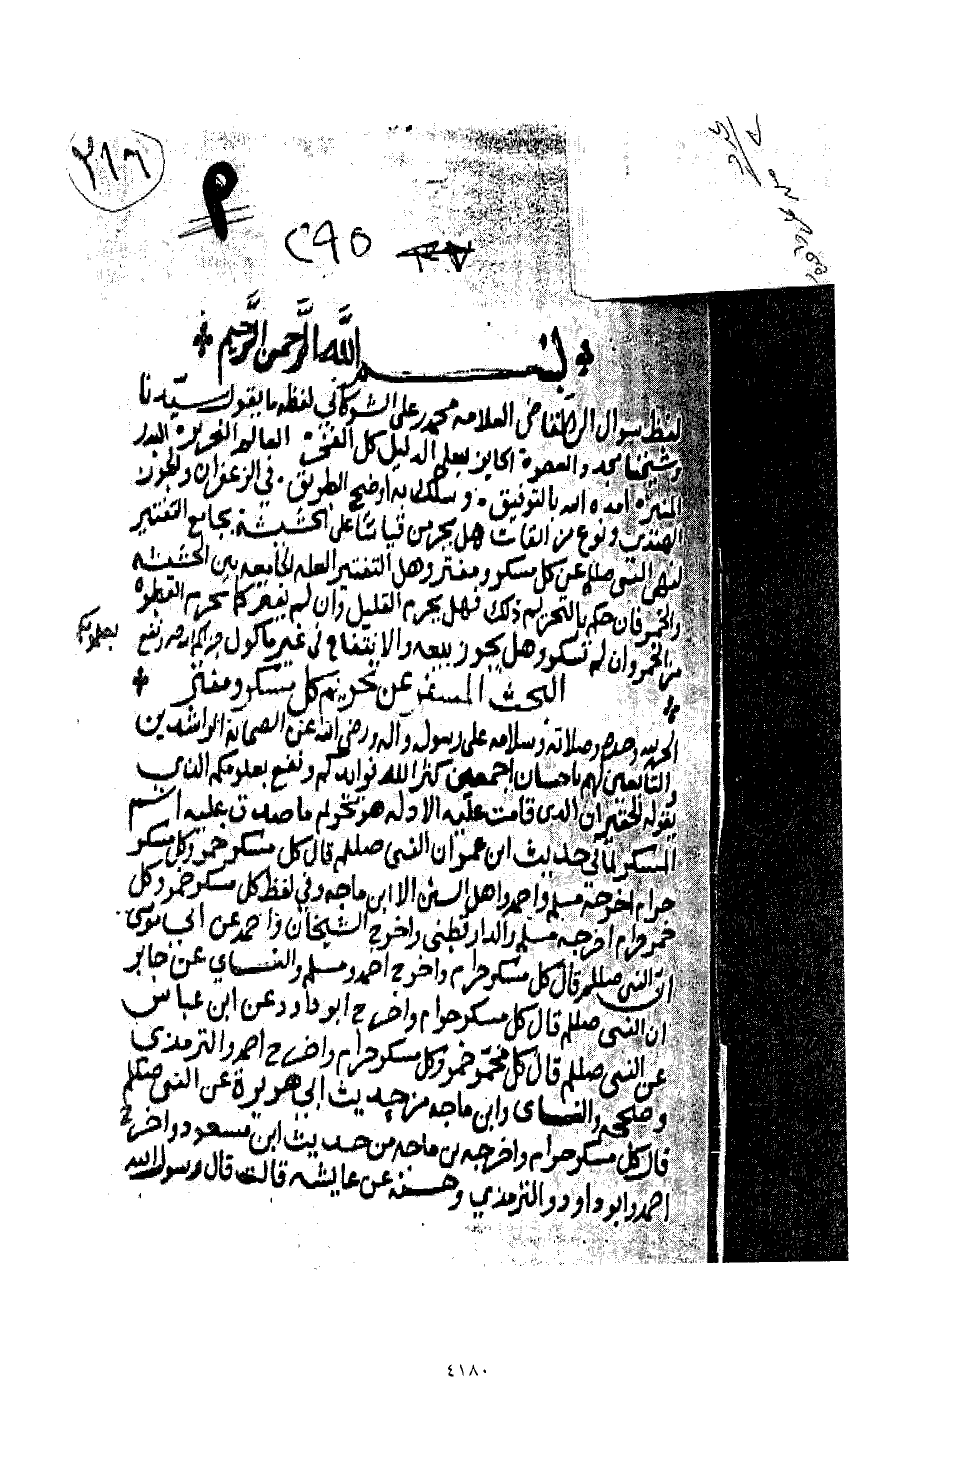 ٢١٦
٢٩٥
بسم الله الرحمن الرحيم
لفظ سوال القاضي العلامه محمد بن علي الشوكاني لفظه ما يقول سيدنا
وشيخنا مجد والعصره الحايز بعلم الدليل كل الفخر العالم النحرير البدر
المنير امده الله بالتوفيق وسلك به اوضح الطريق في الزعفران والجوز
الهندي ونوع من القات هل يحرمن قياسا على الحشيشة بجامع التفتير
لنهي النبي صللم عن كل مسكر ومفتر وهل التفتير العله الجامعه بين الحشيشه
والخمر فان حكم بالتحريم لذلك فهل يحرم القليل وان لم يفتر كما يحرم القطره
من الخمر وان لم تسكر وهل يجوز بيعه والانتفاع في غير ماكول جزاكم الله نفع
بعلومكم
البحث المسفر عن تحريم كل مسكر ومفتر
الحمد لله وحده وصلاته وسلامه على رسوله وآله ورضي الله عن الصحابة الراشدين
والتابعين لهم باحسان اجمعين كثر الله فوايدكم ونفع بعلومكم الذي
يقوله الحقير ان الذي قامت عليه الادله هو تحريم ما صدق عليه اسم
المسكر لما في حديث ابن عمر ان النبي صللم قال كل مسكر خمر وكل مسكر
حرام اخرجه مسلم واحمد واهل السنن الا ابن ماجه وفي لفظ كل مسكر خمر وكل
خمر حرام اخرجه مسلم والدارقطني واخرج الشيخان واحمد عن ابي موسى
ان النبي صللم قال كل مسكر حرام واخرج احمد ومسلم والنساي عن جابر
ان النبي صللم قال كل مسكر حرام واخرج ابو داود عن ابن عباس
عن النبي صللم قال كل مخمر خمر وكل مسكر حرام واخرج احمد والترمذي
وصححه والنساي وابن ماجه من حديث ابي هريرة عن النبي صللم
قال كل مسكر حرام واخرجه بن ماجه من حديث ابن مسعود واخرج
احمد وابو داود والترمذي وحسنه عن عايشه قالت قال رسول الله
٤١٨٠